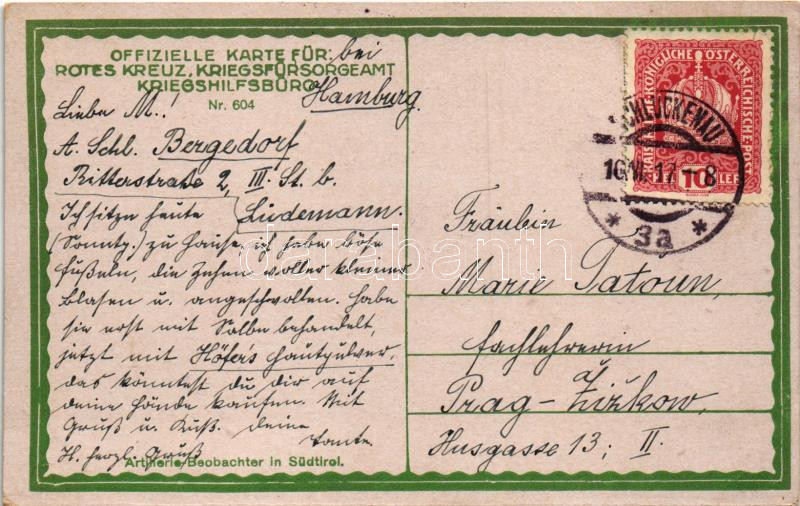 OFFIZIELLE KARTE FÜR:
ROTES KREUZ, KRIEGSFÜRSORGEAMT
KRIEGSHILFSBÜRO
Nr. 604
bei
Hamburg.
Liebe M.!
A. Schl. Bergedorf
Ritterstraße 2, III. St. b.
Lüdemann.
Ich sitze heute
(Sonntg.) zu Hause, ich habe böse
Füßeln, die Zehen voller kleiner
Blasen u. angeschwollen. Habe
sie erst mit Salbe behandelt,
jetzt mit Höfer's Hautpulver,
das könntest du dir auf
deine Hände kaufen. Mit
Gruß u. Kuß. deine
Tante.
H. herzl. Gruß
Artillerie-Beobachter in Südtirol.
KAISERLICHE KÖNIGLICHE ÖSTERREICHISCHE POST
10
SCHLUCKENAU
16.VI.17-8
* 3a *
Fräulein
Marie Tatoun,
Fachlehrerin
Prag-Žižkow,
Husgasse 13, II.
darabanth